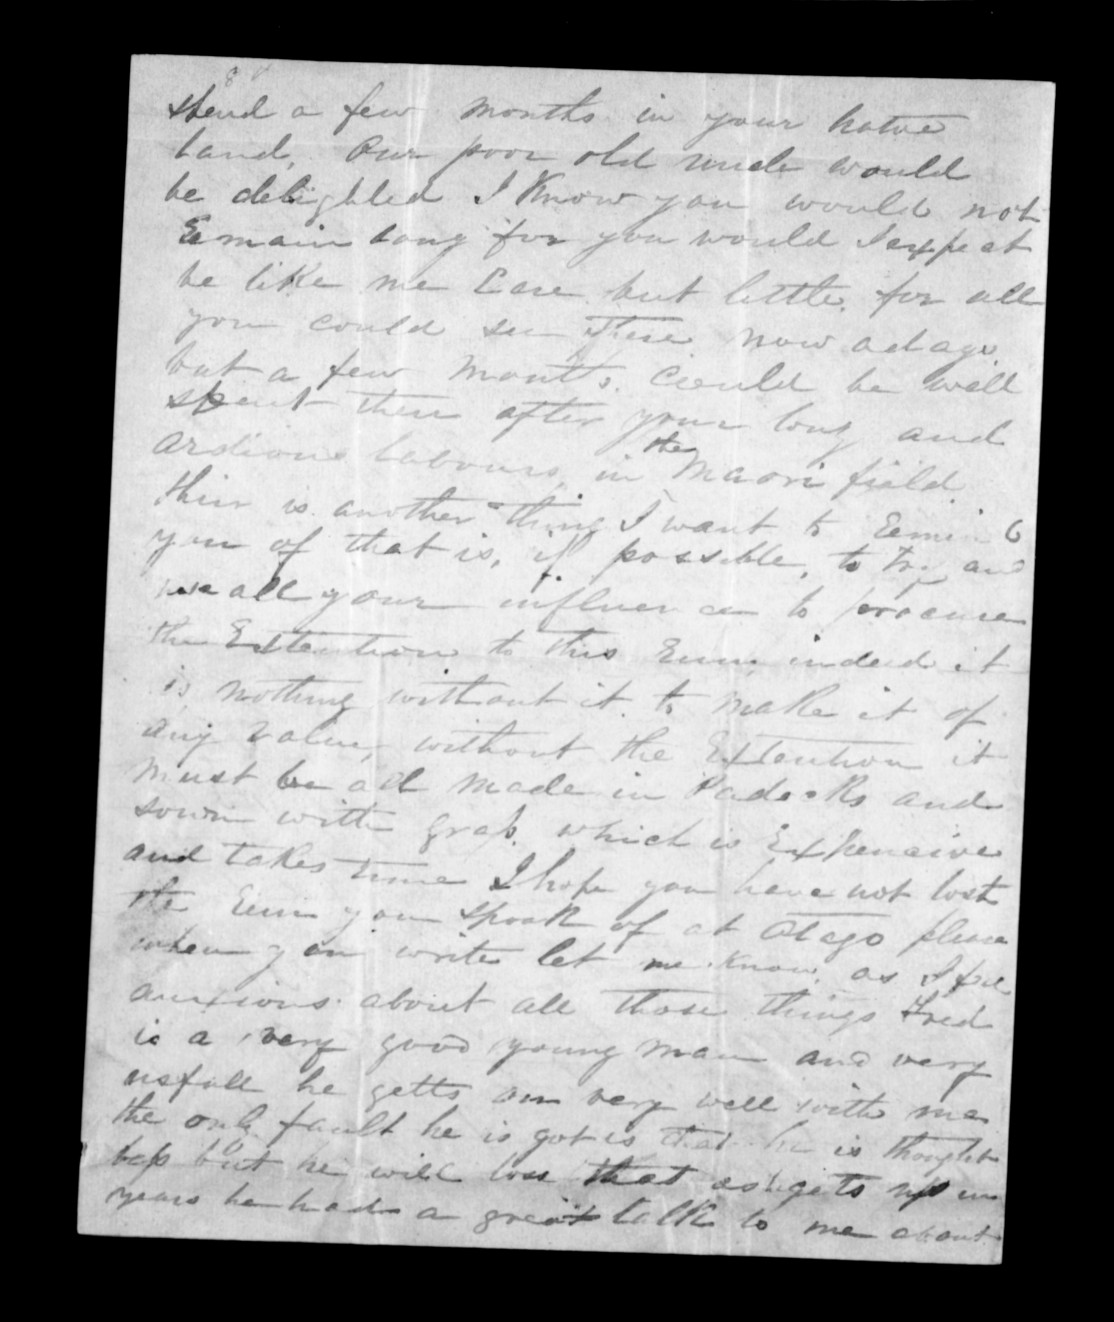 spend a few months in your native
land, Our poor old uncle would
be delighted I Know you would not
Remain long for you would I expect
be like me Care but little for all
you could see there now adays
but a few months could be well
spent there after your long and
ardious labours, in the Maori field
thier is another thing I want to Remind
you of that is, if possible, to try and
use all your influence to procure
the Extention to this Run, indeed it
is nothing without it to make it of
any value, without the Extention it
must be all made in Padocks and
sown with grass which is Expensive
and takes time I hope you have not lost
the Run you spoak of at Otago please
when you write let me know as I feel
anxious about all those things Fred
is a very good young man and very
usfull he getts on very well with me
the only fault he is got is that he is thought
less but he will loss that as gets up in
years he had a great talk to me about